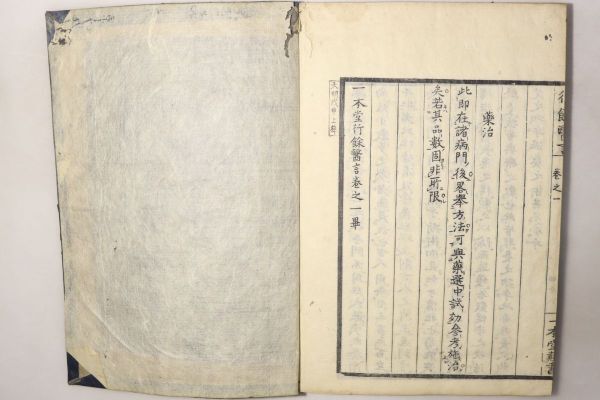 行餘醫言 卷之一
藥治
此即在諸病門後畧擧方法可與藥選中試効參考施治
矣若其品數固非所限
一本堂行餘醫言卷之一畢